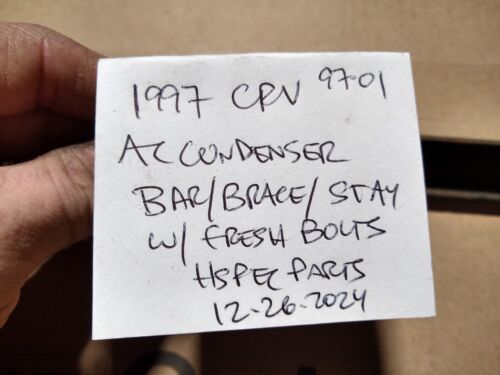 1997 CRV 97-01
AC CONDENSER
BAR/BRACE/STAY
W/ FRESH BOLTS
HSPEC PARTS
12-26-2024